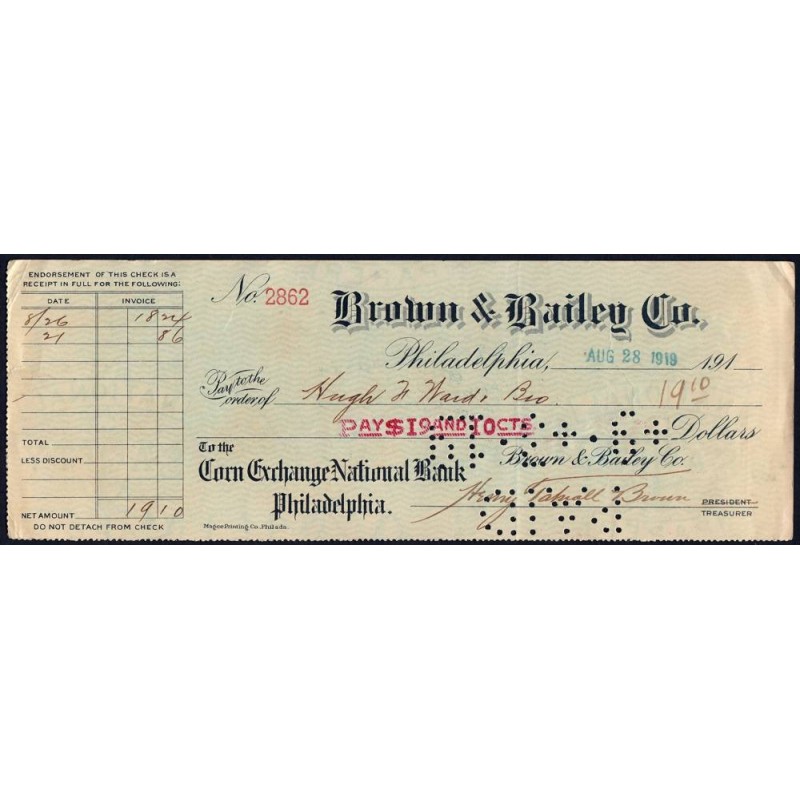 ENDORSEMENT OF THIS CHECK IS A
RECEIPT IN FULL FOR THE FOLLOWING:
DATE INVOICE
8/26 18 24
21 86
TOTAL
LESS DISCOUNT
NET AMOUNT 19 10
DO NOT DETACH FROM CHECK
No. 2862
Brown & Bailey Co.
Philadelphia, AUG 28 1919 191
Pay to the order of Hugh F Ward & Bro 19 10
PAY $19 AND 10 CTS Dollars
To the Brown & Bailey Co.
Corn Exchange National Bank
Philadelphia.
Henry Tatnall Brown PRESIDENT
TREASURER
Magee Printing Co. Philada.